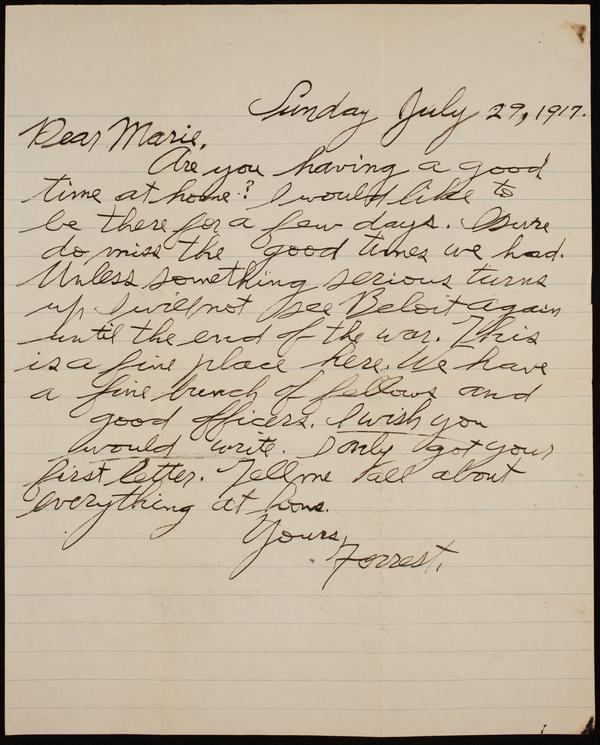 Sunday July 29, 1917.
Dear Marie,
Are you having a good
time at home? I would like to
be there for a few days. I sure
do miss the good times we had.
Unless something serious turns
up I will not see Beloit again
until the end of the war. This
is a fine place here. We have
a fine bunch of fellows and
good officers. I wish you
would write. I only got your
first letter. Tell me all about
everything at home.
Yours,
Forrest.